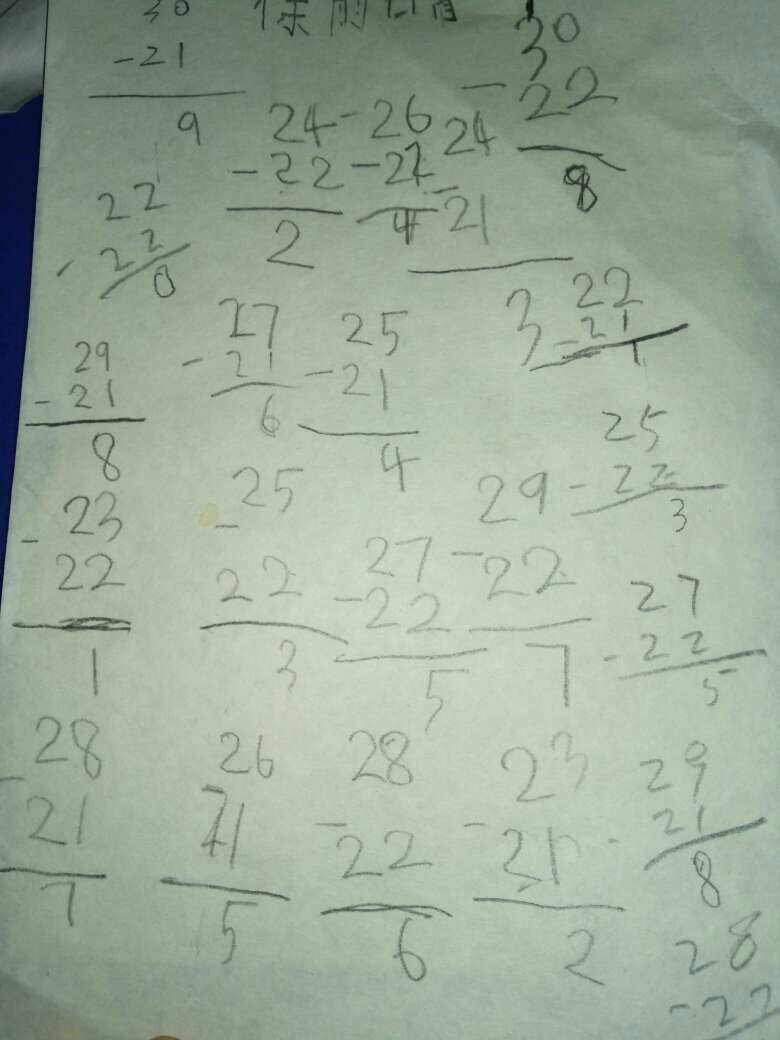 30
-21
9
- 30
22
8
24
-22
2
- 26
-22
4
24
- 21
3
22
- 22
0
22
-21
1
27
- 21
6
25
-21
4
29
-21
8
25
-22
3
- 23
22
1
- 25
22
3
27
-22
5
29
- 22
7
27
-22
5
28
- 21
7
26
21
5
28
- 22
6
23
- 21
2
29
- 21
8
28
-22